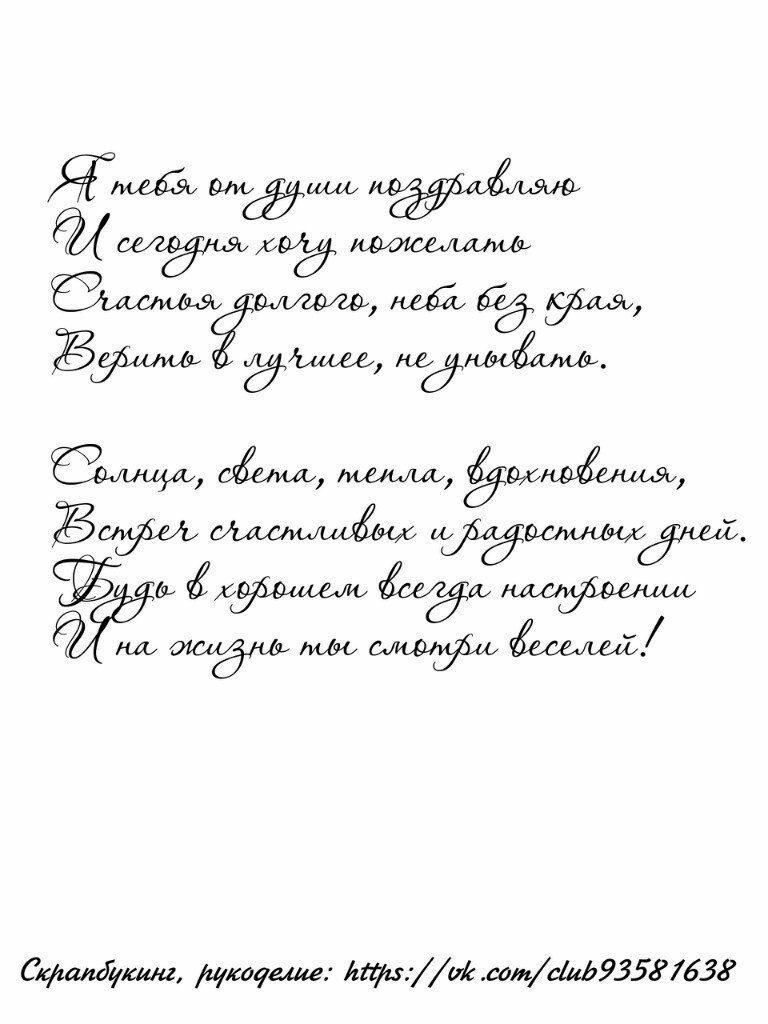 Я тебя от души поздравляю
И сегодня хочу пожелать
Счастья долгого, неба без края,
Верить в лучшее, не унывать.
Солнца, света, тепла, вдохновения,
Встреч счастливых и радостных дней.
Будь в хорошем всегда настроении
И на жизнь ты смотри веселей!
Скрапбукинг, рукоделие: https://vk.com/club93581638